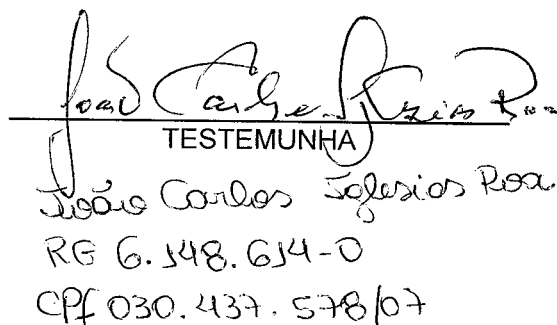 João Carlos Iglesias R...
TESTEMUNHA
João Carlos Iglesias Roa.
RG 6.148.614-0
CPf 030.437.578/07